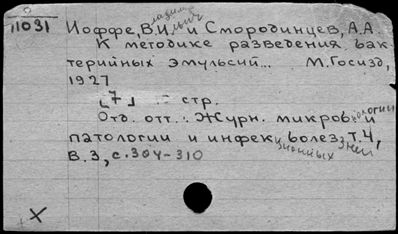 11031
Иоффе, Владимир Ильич и Смородинцев, А.А.
К методике разведения бак-
терийных эмульсий... М. Госизд,
1927
[7] стр.
Отд. отт.: Журн. микробиологии
патологии и инфекционных болезней, т.4,
в.3, с.304-310
X